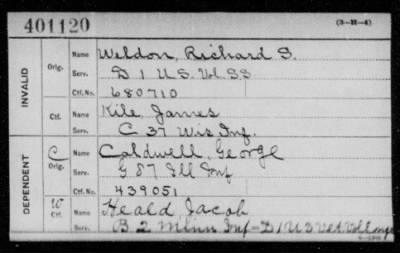 401120 (3-H-4)
INVALID
Orig. Name Weldon, Richard S.
Serv. D 1 U.S. Vol. S.S
Ctf. No. 680710
Ctf. Name Kile, James
Serv. C 37 Wis Inf.
DEPENDENT
C Orig. Name Caldwell, George
Serv. G 87 Ill Inf
Ctf. No. 439051
W Ctf. Name Heald, Jacob
Serv. B 2 Minn Inf - D 1 U S Vet Vol